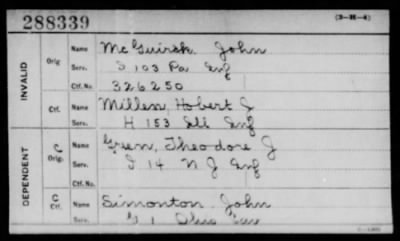 288339
(3-H-4)
INVALID
Orig
Name McGuirsk John
Serv. I 103 Pa Inf
Ctf. No. 326250
Ctf.
Name Millen, Hobert J
Serv. H 153 Ill Inf
DEPENDENT
C Orig.
Name Green, Theodore J
Serv. I 14 N J Inf
Ctf. No.
C Ctf.
Name Simonton John
Serv. G 1 Ohio Cav